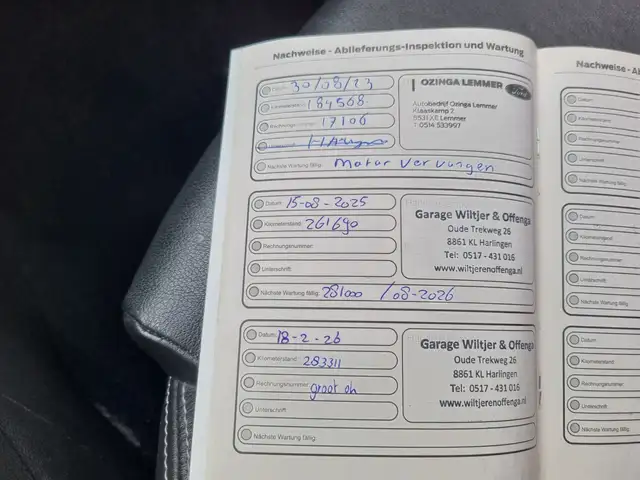 Nachweise - Ablieferungs-Inspektion und Wartung
Datum: 30/08/23
Kilometerstand: 184568
Rechnungsnummer: 17106
Unterschrift:
Nächste Wartung fällig: Motor vervangen
OZINGA LEMMER Ford
Autobedrijf Ozinga Lemmer
Klaaskamp 2
8531 XE Lemmer
T 0514 533997
Datum: 15-08-2025
Kilometerstand: 261690
Rechnungsnummer:
Unterschrift:
Nächste Wartung fällig: 281000 /08-2026
Garage Wiltjer & Offenga
Oude Trekweg 26
8861 KL Harlingen
Tel: 0517 - 431 016
www.wiltjerenoffenga.nl
Datum: 18-2-26
Kilometerstand: 283311
Rechnungsnummer: groot oh
Unterschrift:
Nächste Wartung fällig:
Garage Wiltjer & Offenga
Oude Trekweg 26
8861 KL Harlingen
Tel: 0517 - 431 016
www.wiltjerenoffenga.nl
Nachweise - Ab
Datum:
Kilometerstand:
Rechnungsnummer:
Unterschrift:
Nächste Wartung fällig:
Datum:
Kilometerstand:
Rechnungsnummer:
Unterschrift:
Nächste Wartung fällig:
Datum:
Kilometerstand:
Rechnungsnummer:
Unterschrift:
Nächste Wartung fällig: